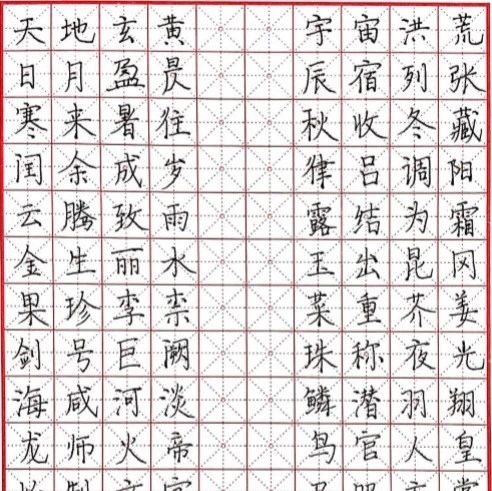 天地玄黄 宇宙洪荒
日月盈昃 辰宿列张
寒来暑往 秋收冬藏
闰余成岁 律吕调阳
云腾致雨 露结为霜
金生丽水 玉出昆冈
果珍李柰 菜重芥姜
剑号巨阙 珠称夜光
海咸河淡 鳞潜羽翔
龙师火帝 鸟官人皇